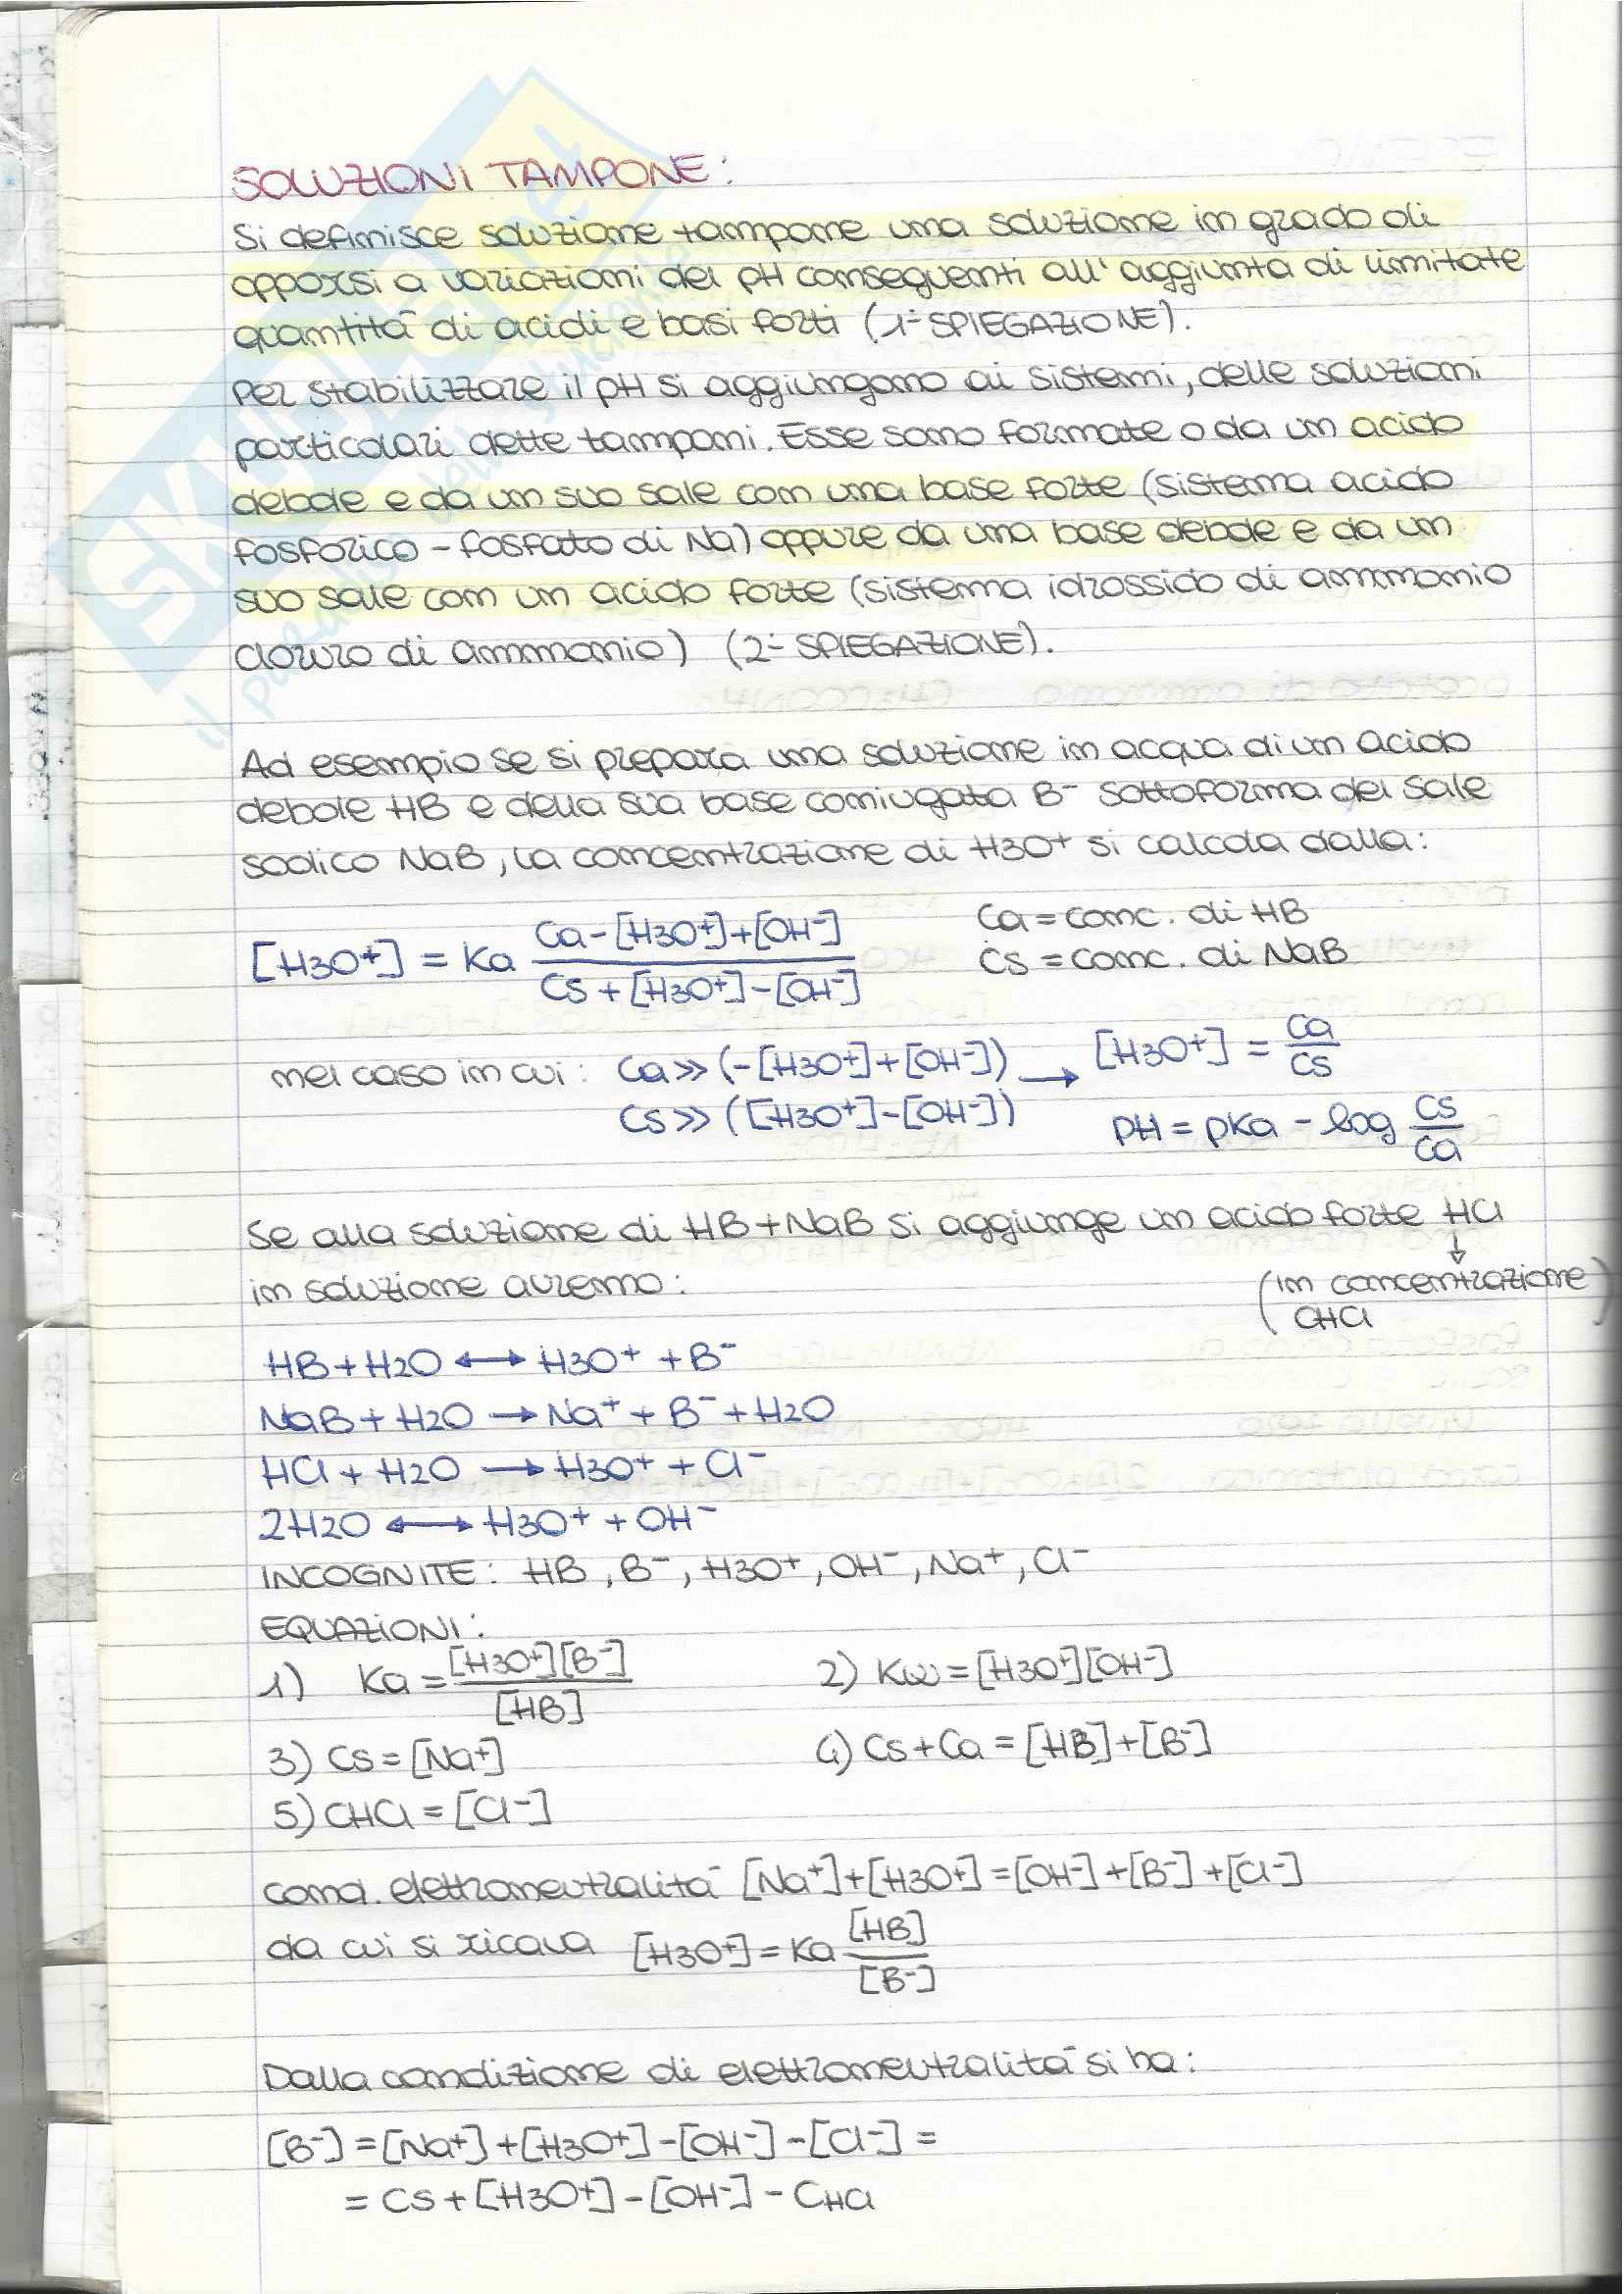 SOLUZIONI TAMPONE:
Si definisce soluzione tampone una soluzione in grado di
opporsi a variazioni del pH conseguenti all'aggiunta di limitate
quantità di acidi e basi forti (1ª SPIEGAZIONE).
Per stabilizzare il pH si aggiungono ai sistemi, delle soluzioni
particolari dette tamponi. Esse sono formate o da un acido
debole e da un suo sale con una base forte (sistema acido
fosforico - fosfato di Na) oppure da una base debole e da un
suo sale con un acido forte (sistema idrossido di ammonio
cloruro di ammonio) (2ª SPIEGAZIONE).
Ad esempio se si prepara una soluzione in acqua di un acido
debole HB e della sua base coniugata B⁻ sottoforma del sale
sodico NaB, la concentrazione di H3O⁺ si calcola dalla:
[H3O⁺] = Ka (Ca-[H3O⁺]+[OH⁻])/(Cs+[H3O⁺]-[OH⁻]) Ca = conc. di HB
Cs = conc. di NaB
nel caso in cui: Ca >> (-[H3O⁺]+[OH⁻]) → [H3O⁺] = Ca/Cs
Cs >> ([H3O⁺]-[OH⁻]) pH = pKa - log Cs/Ca
Se alla soluzione di HB+NaB si aggiunge un acido forte HCl
↓
in soluzione avremo: (in concentrazione
CHCl)
HB + H2O ⟷ H3O⁺ + B⁻
NaB + H2O → Na⁺ + B⁻ + H2O
HCl + H2O → H3O⁺ + Cl⁻
2H2O ⟷ H3O⁺ + OH⁻
INCOGNITE: HB, B⁻, H3O⁺, OH⁻, Na⁺, Cl⁻
EQUAZIONI:
1) Ka = [H3O⁺][B⁻]/[HB] 2) Kw = [H3O⁺][OH⁻]
3) Cs = [Na⁺] 4) Cs+Ca = [HB]+[B⁻]
5) CHCl = [Cl⁻]
cond. elettroneutralità [Na⁺]+[H3O⁺] = [OH⁻]+[B⁻]+[Cl⁻]
da cui si ricava [H3O⁺] = Ka [HB]/[B⁻]
Dalla condizione di elettroneutralità si ha:
[B⁻] = [Na⁺]+[H3O⁺]-[OH⁻]-[Cl⁻] =
= Cs+[H3O⁺]-[OH⁻]-CHCl